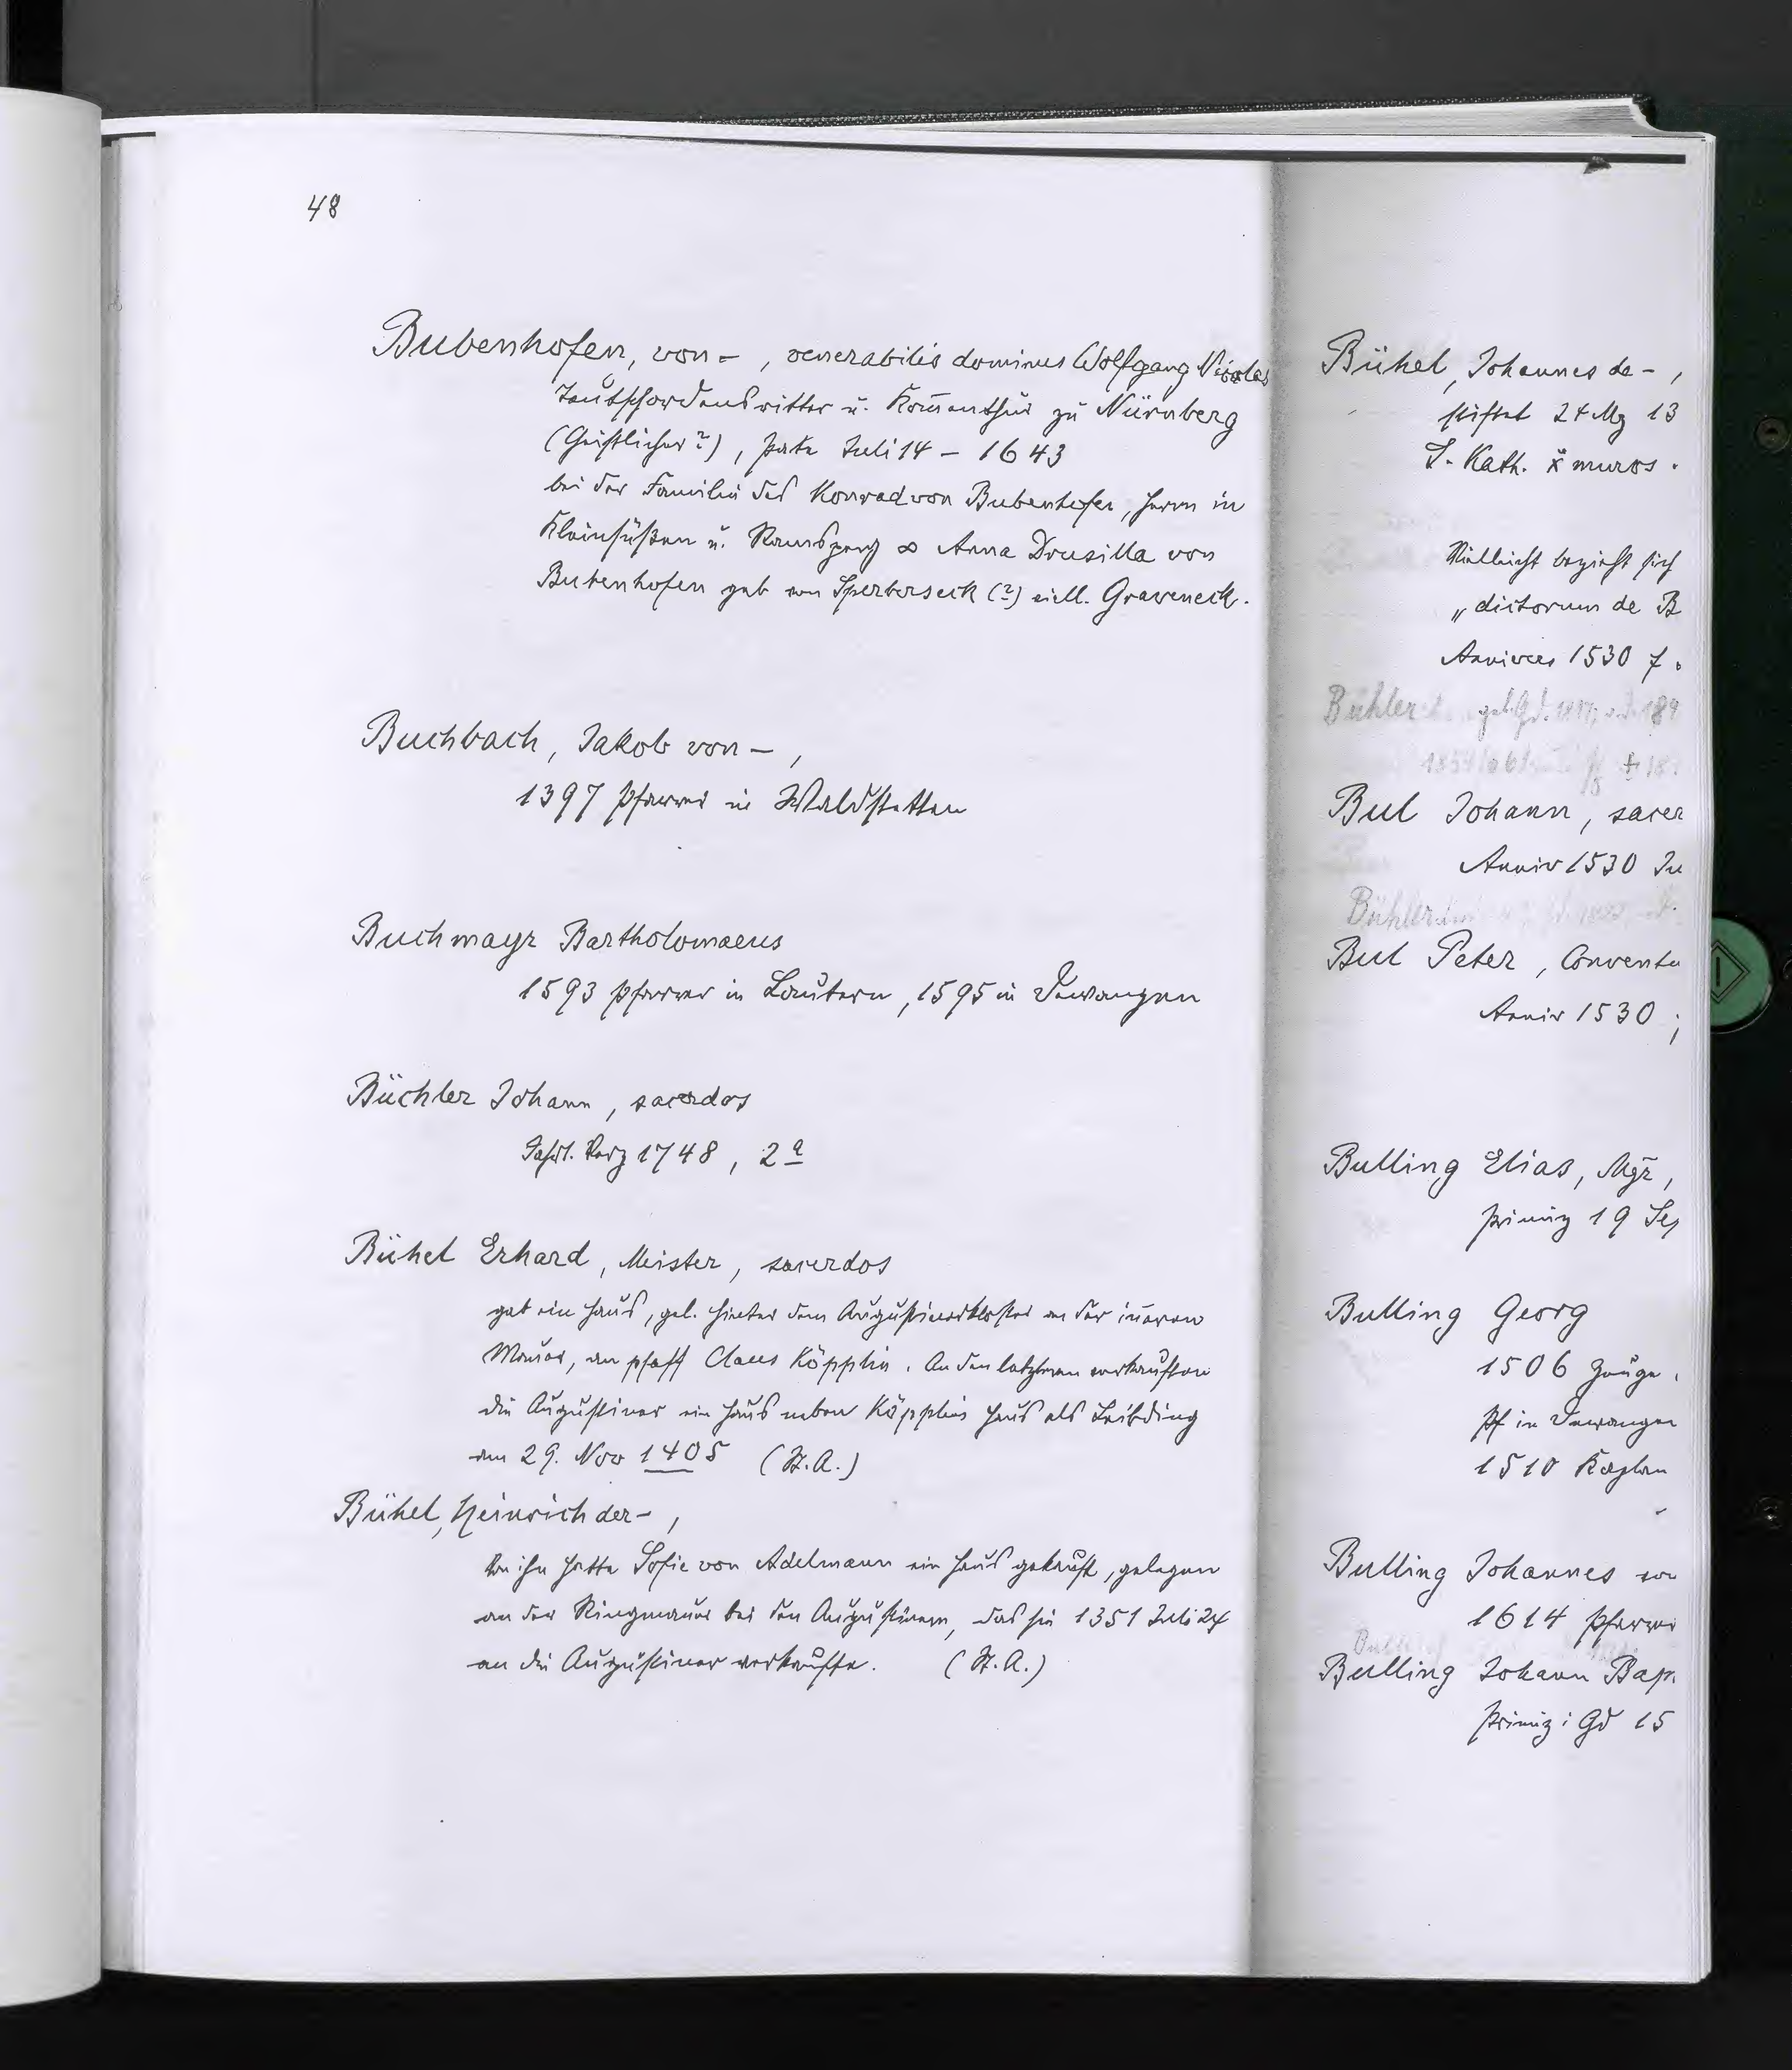 48
Bubenhofen, von –, venerabilis dominus Wolfgang Nicolas
Deutschordensritter u. Komenthur zu Nürnberg
(Geistlicher?), Pate Juli 14 – 1643
bei der Familie des Konrad von Bubenhofen, Herrn in
Kleinsüßen u. Ramsperg ∞ Anna Drusilla von
Bubenhofen geb von Sperberseck (?) viell. Graveneck.
Buchbach, Jakob von –,
1397 Pfarrer in Waldstetten
Buchmayr Bartholomaeus
1593 Pfarrer in Lautern, 1595 in Dewangen
Büchler Johann, sacerdos
Verz 1748, 2a
Bühel Erhard, Meister, sacerdos
gab ein Haus, gel. hinter dem Augustinerkloster an der iñeren
Mauer, an pfaff Claus Köpplin. An den letzteren verkauften
die Augustiner ein Haus neben Köpplins Haus als Leibding
am 29. Nov 1405 (St.A.)
Bühel, Heinrich der –,
Von ihm hatte Sofie von Adelmann ein Haus gekauft, gelegen
an der Ringmauer bei den Augustinern, das sie 1351 Juli 24
an die Augustiner verkaufte. (St.A.)
Bühel, Johannes de –,
stiftet 24 Mz 13
S. Kath. muros
Vielleicht bezieht sich
„dictorum de B
Annivers 1530 7
Bühler
Bul Johann, sacer
Anniv 1530 Ju
Bühler
Bul Peter, Conventu
Anniv 1530;
Bulling Elias, Mgr,
Primiz 19 Sep
Bulling Georg
1506 Zeuge
Pf in Dewangen
1510 Kaplan
Bulling Johannes
1614 Pfarrer
Bulling Johann Bap
Primiz: Gd 15